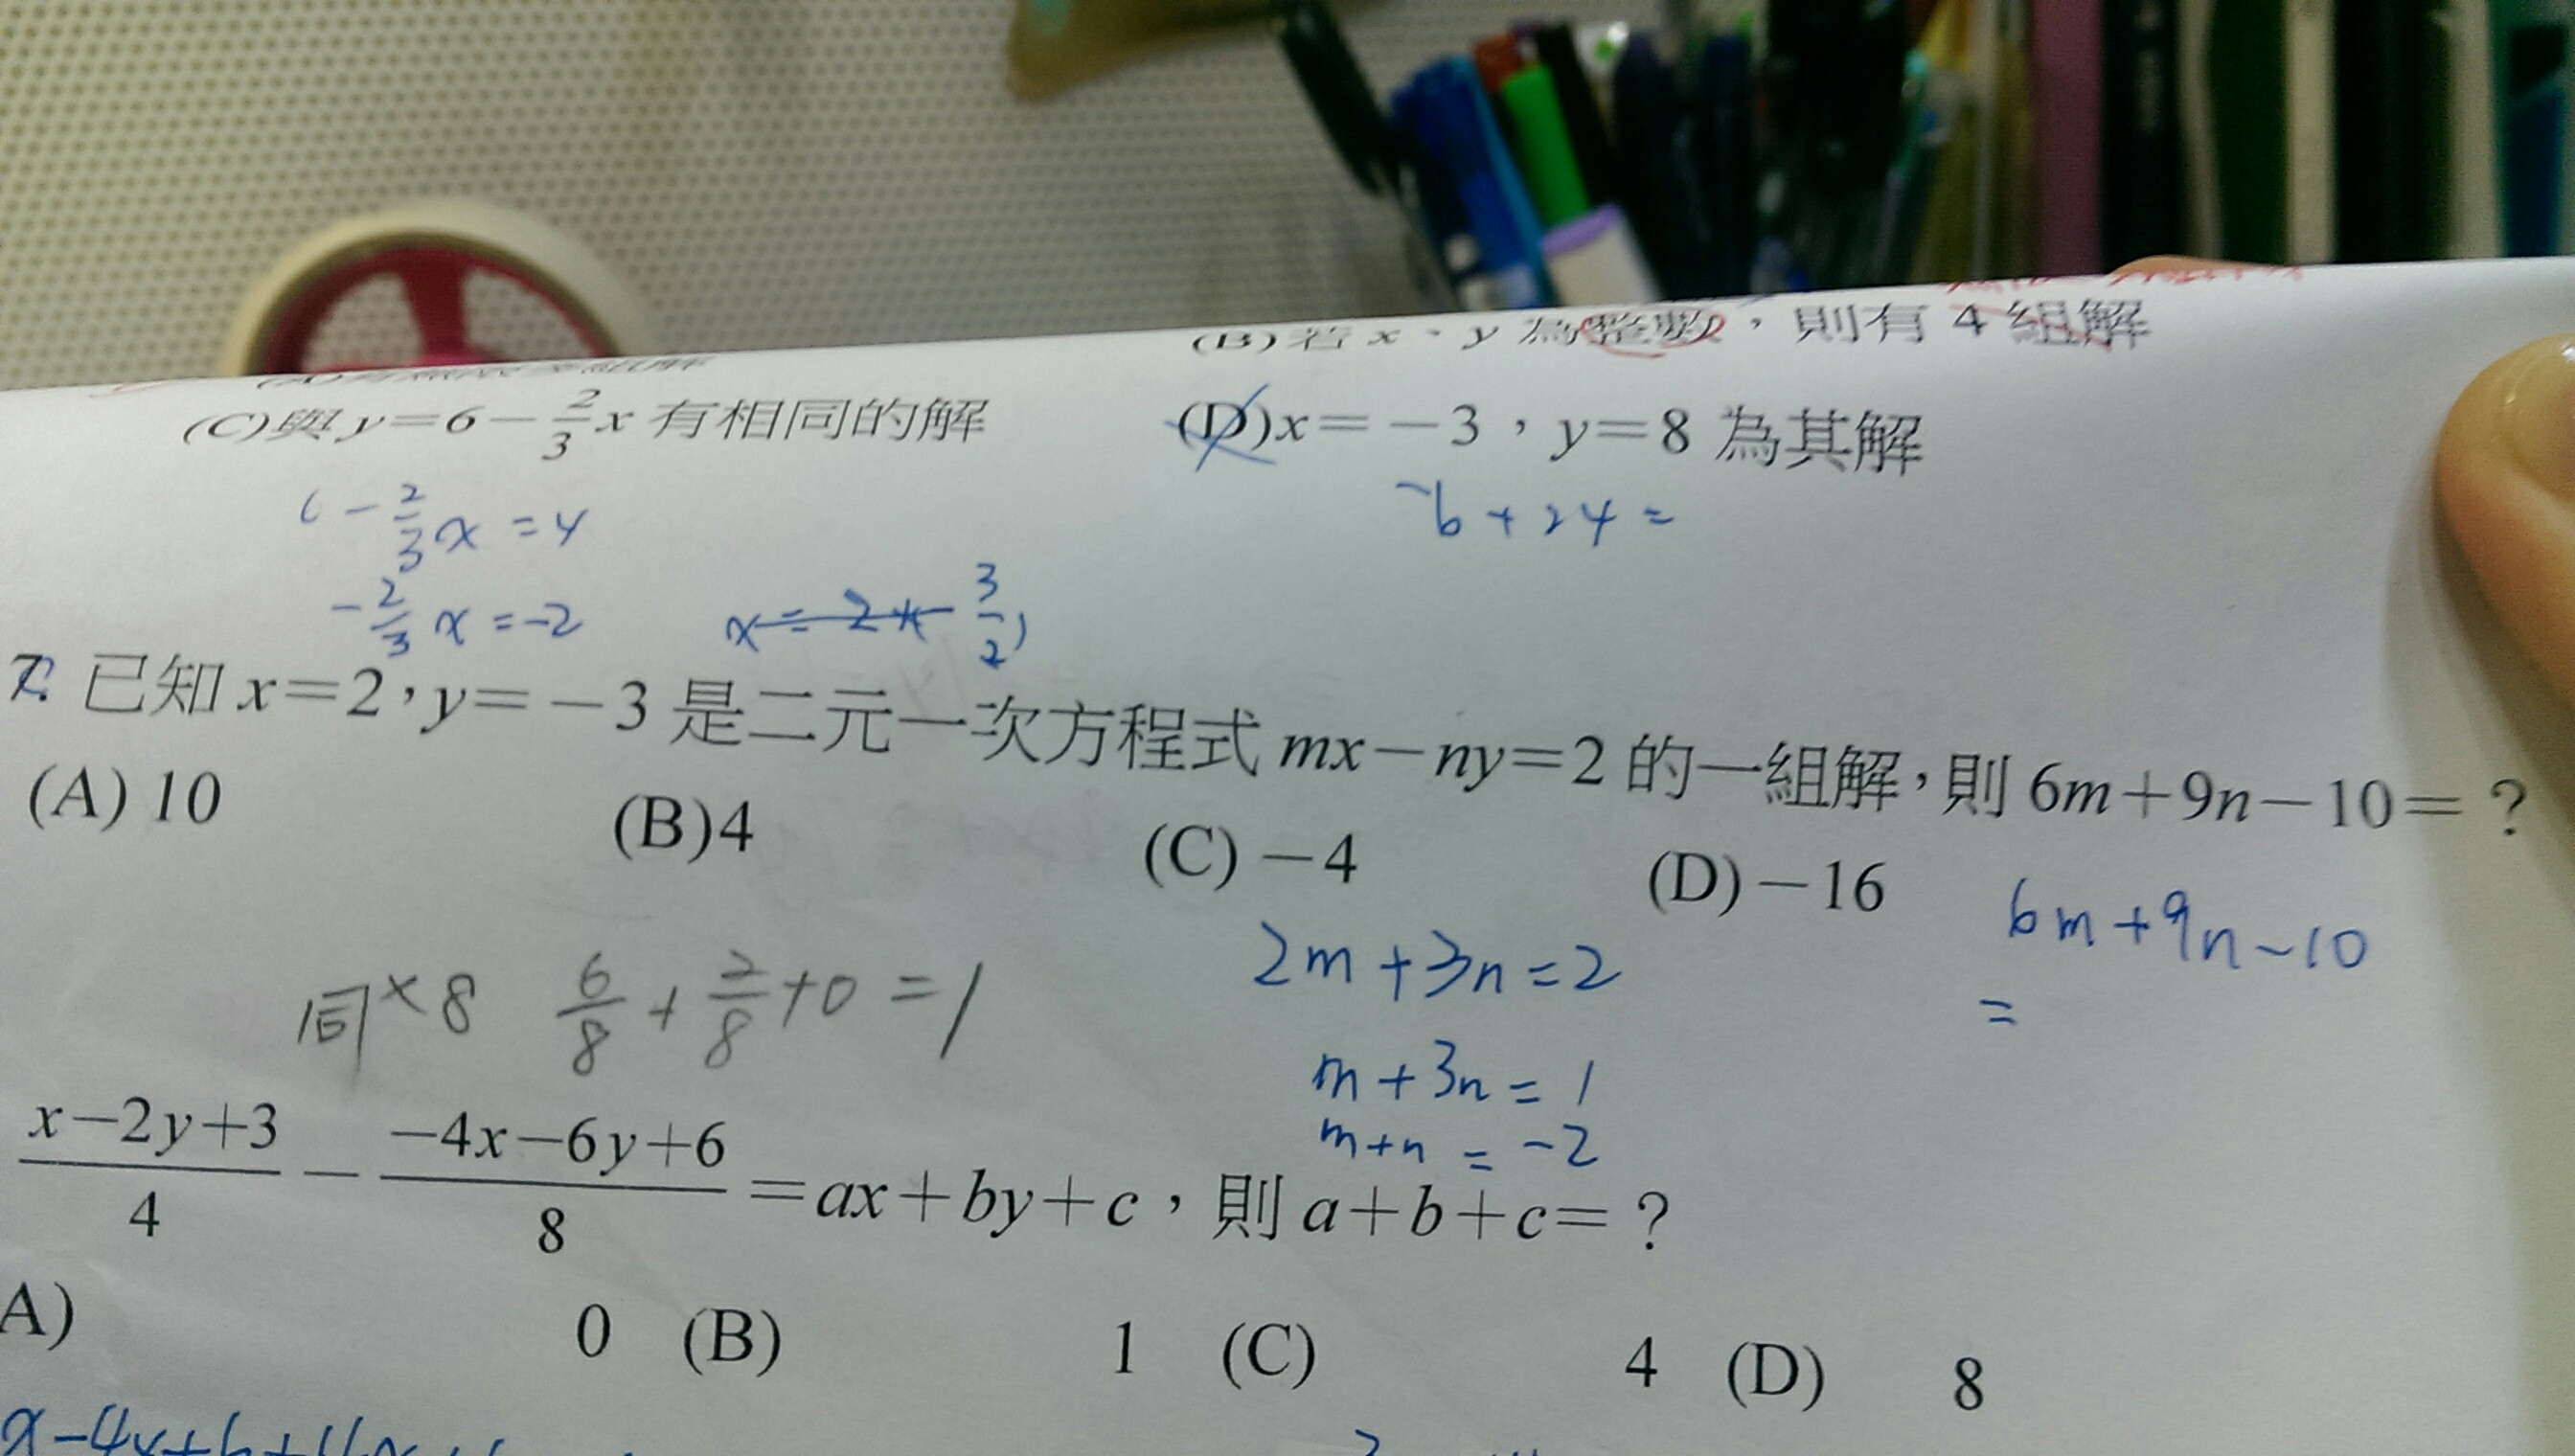 (B)若 x、y 為整數，則有 4 組解
(C)與 y=6−\frac{2}{3}x 有相同的解
(D)x=−3，y=8 為其解
−\frac{2}{3}x=4
−6+24=
−\frac{2}{3}x=−2
x=2×\frac{3}{2}
7. 已知 x=2，y=−3 是二元一次方程式 mx−ny=2 的一組解，則 6m+9n−10=？
(A) 10 (B)4 (C)−4 (D)−16
6m+9n−10
=
2m+3n=2
同×8 \frac{6}{8}+\frac{2}{8}+0=1
m+3n=1
m+n=−2
\frac{x−2y+3}{4}−\frac{−4x−6y+6}{8}=ax+by+c，則 a+b+c=？
A) 0 (B) 1 (C) 4 (D) 8